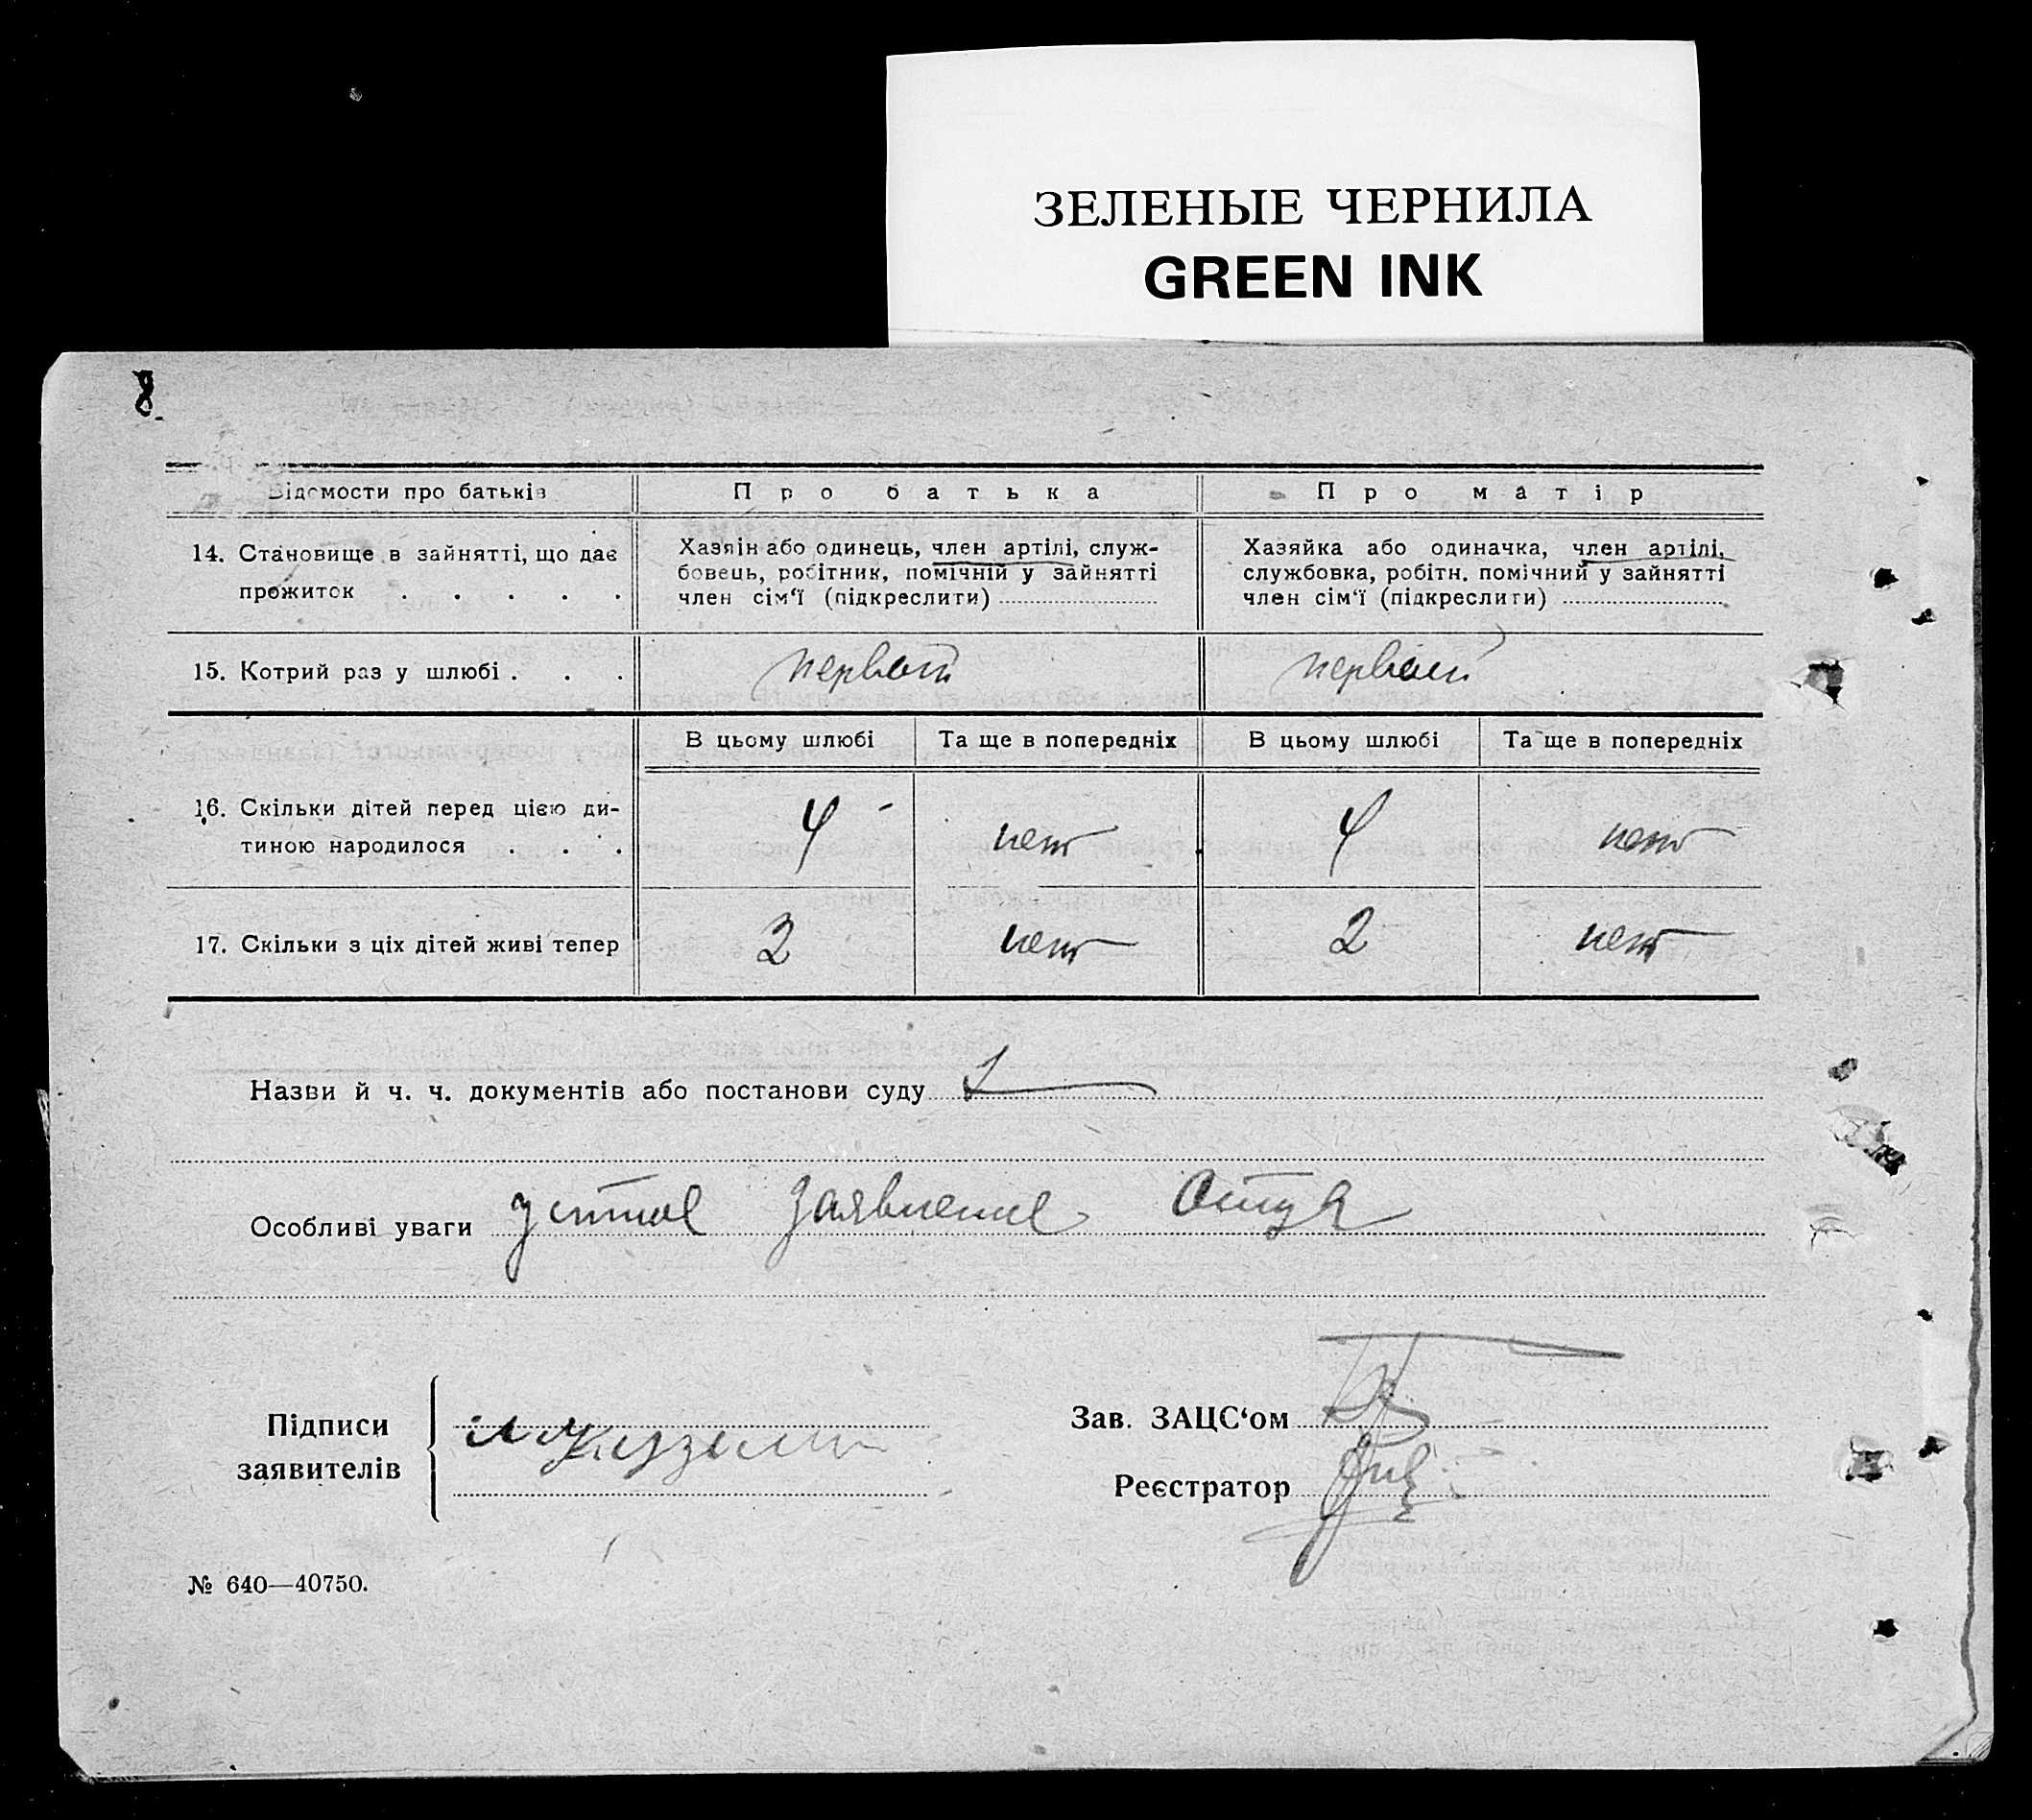 ЗЕЛЕНЫЕ ЧЕРНИЛА
GREEN INK
8.
Відомости про батьків
Про батька
Про матір
14. Становище в зайнятті, що дає
прожиток . . . . .
Хазяін або одинець, член артілі, служ-
бовець, робітник, помічній у зайнятті
член сім‘ї (підкреслити)
Хазяйка або одиначка, член артілі,
службовка, робітн. помічний у зайнятті
член сім‘ї (підкреслити)
15. Котрий раз у шлюбі . . .
первый
первый
В цьому шлюбі
Та ще в попередніх
В цьому шлюбі
Та ще в попередніх
16. Скільки дітей перед цією ди-
тиною народилося . . .
4
нет
4
нет
17. Скільки з ціх дітей живі тепер
2
нет
2
нет
Назви й ч. ч. документів або постанови суду
Особливі уваги устное заявление отца
Підписи
заявителів
Зав. ЗАЦС‘ом
Реєстратор
№ 640—40750.